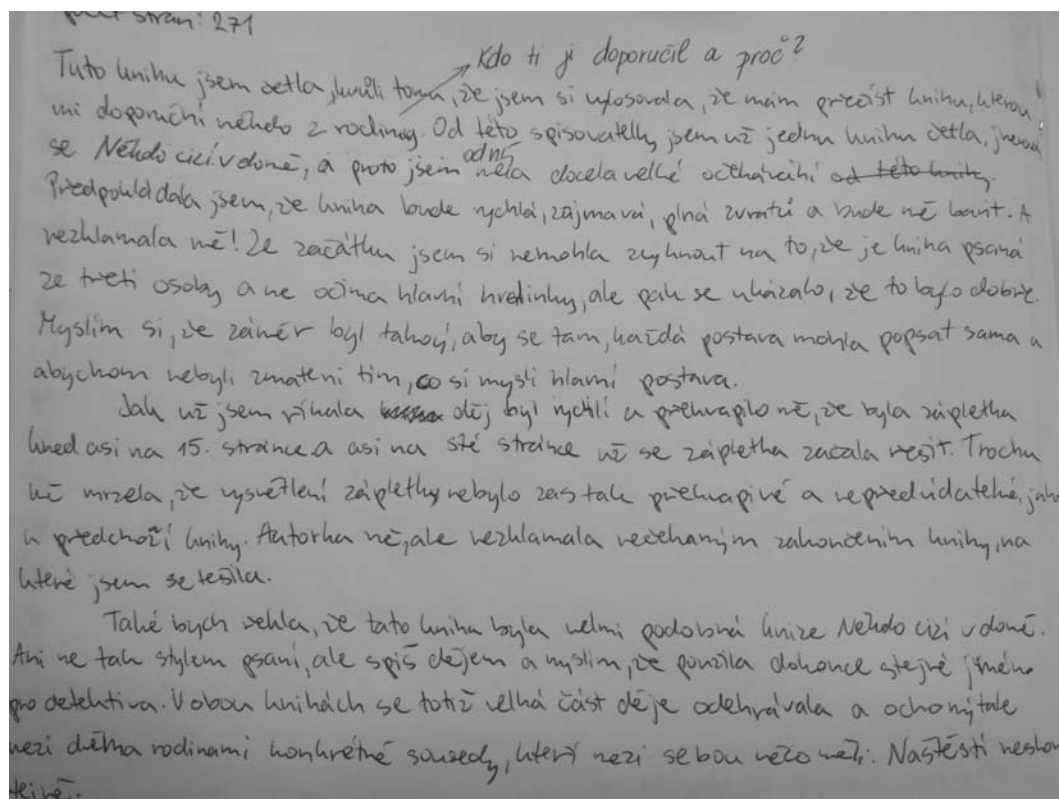 počet stran: 271
Kdo ti ji doporučil a proč?
Tuto knihu jsem četla, kvůli tomu, že jsem si vylosovala, že mám přečíst knihu, kterou
mi doporuční někdo z rodiny. Od této spisovatelky jsem už jednu knihu četla, jmenuje
se Někdo cizí v domě, a proto jsem od ní měla docela velké očekávání od této knihy.
Předpokládala jsem, že kniha bude rychlá, zajmavá, plná zvratů a bude mě bavit. A
nezklamala mě! Ze začátku jsem si nemohla zvyknout na to, že je kniha psaná
ze třetí osoby a ne očima hlavní hrdinky, ale pak se ukázalo, že to bylo dobře.
Myslím si, že záměr byl takový, aby se tam, každá postava mohla popsat sama a
abychom nebyli zmateni tím, co si myslí hlavní postava.
Jak už jsem říkala děj byl rychlí a překvapilo mě, že byla zápletka
hned asi na 15. stránce a asi na sté stránce už se zápletka začala řešit. Trochu
mě mrzela, že vysvětlení zápletky nebylo zas tak překvapivé a nepředvídatelné, jako
u předchozí knihy. Autorka mě, ale nezklamala nečekaným zakončením knihy, na
které jsem se těšila.
Také bych řekla, že tato kniha byla velmi podobná knize Někdo cizí v domě.
Ani ne tak stylem psaní, ale spíš dějem a myslím, že použila dokonce stejné jméno
pro detektiva. V obou knihách se totiž velká část děje odehrávala a ochomýtale
mezi dvěma rodinami konkrétně sousedy, kteří mezi sebou něco měli. Naštěstí neskon